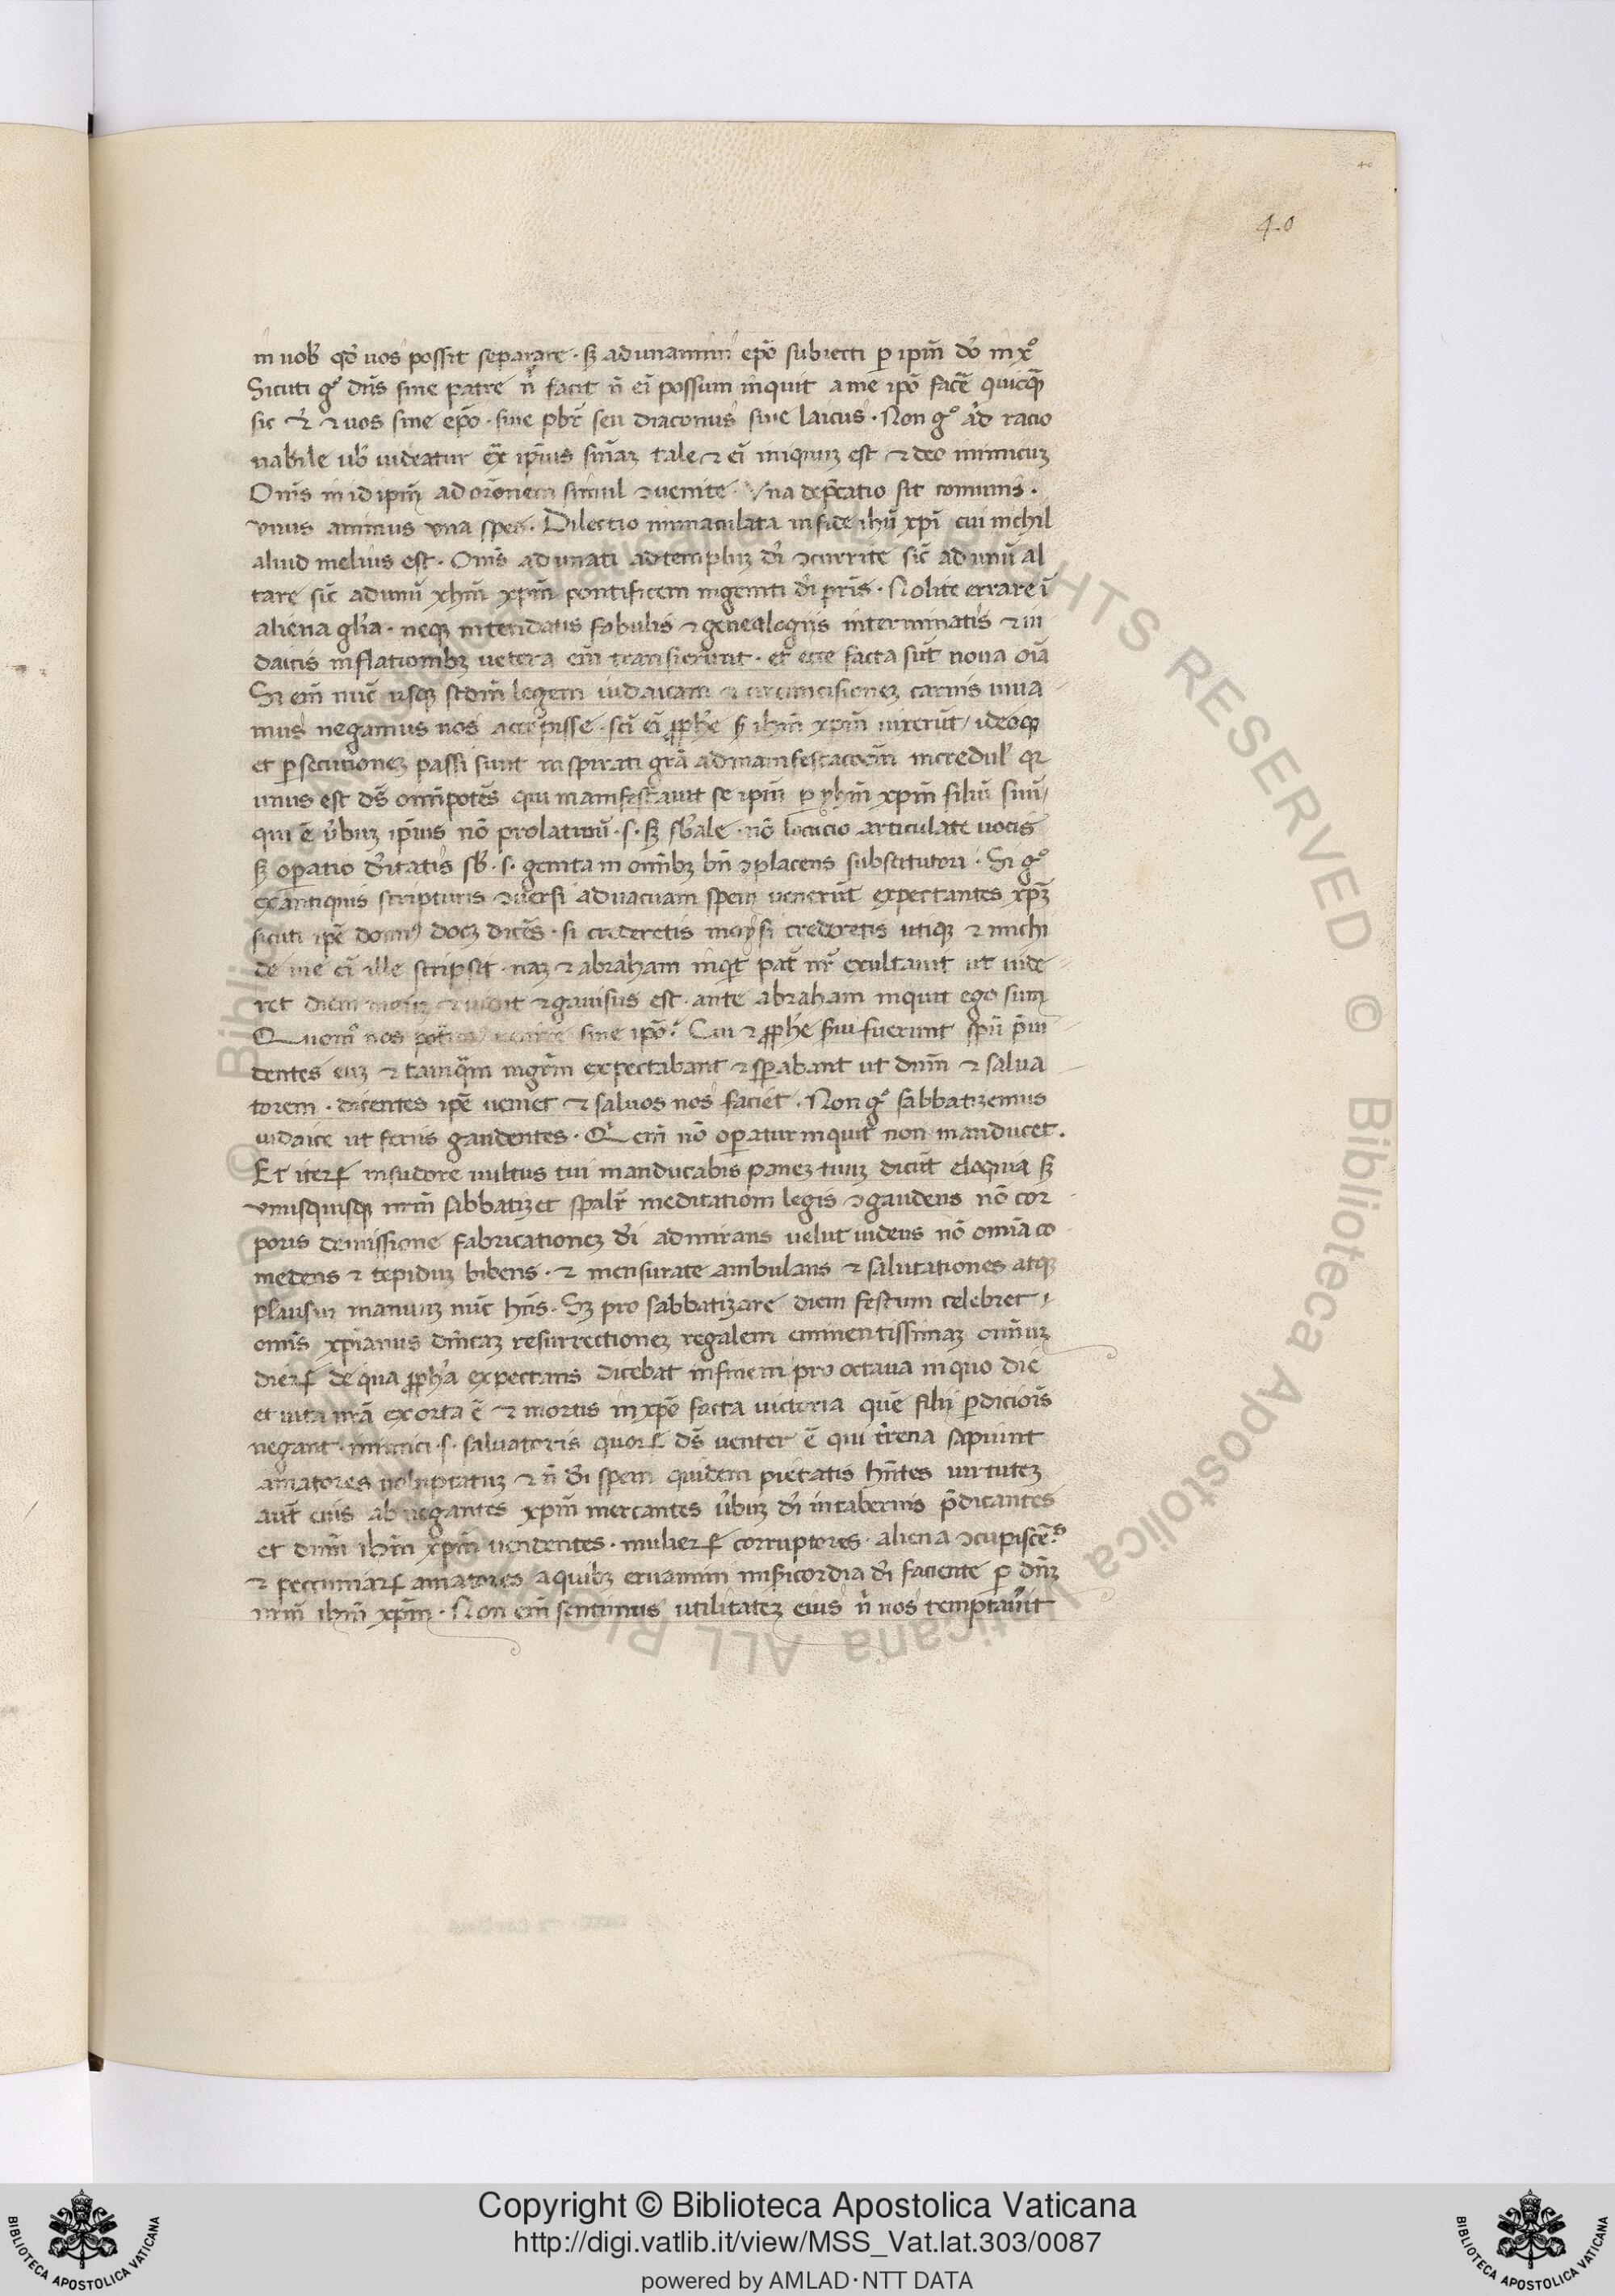 40
40
in uob̕ qđ uos possit separare · sꝫ adunamini ep̄o subiecti ꝑ ip̄m đo in xͦ
Sicuti gͦ dn̄s sine patre n̄ facit n̄ ei̅ possum inquit a me ip̄o facē quicqꝫ
sic ⁊ uos sine ep̄o · sine pbr̄ seu diaconus siue laicus · Non gͦ racio
nabile uob̕ uideatur ip̄ius tale ⁊ ei̅ iniquuꝫ est ⁊ deo inimicuꝫ
Om̄s in id ip̄m ad or̄onem simul ꝯuenite · Vna dep̄catio sit comunis ·
vnus animus vna spes · Dilectio inmaculata in fide ihū xp̄i cui nichil
aliud melius est · Om̄s adunati ad templuꝫ đi ꝯcurrite sic̄ ad unū al
tare sic̄ ad unū yhm̄ xp̄m pontificem ingeniti đi pr̄is · Nolite errare ī
aliena gl̄ia · neqꝫ intendatis fabulis ⁊ genealogiis interminatis ⁊ iu
daicis inflationibꝫ uetera em̄ transierunt · et ecce facta sūt noua oīa
Si em̄ nūc usqꝫ scdm̄ legem iudaicam ⁊ circumcisioneꝫ carnis uiua
mus negamus nos accepisse · sci̅ ei̅ ꝓphe ihm̄ xp̄m uixerūt / ideoqꝫ
et ꝑsecutioneꝫ passi sunt inspirati grā ad manifestacōem incredul̕ qꝛ
unus est dš om̄ipotēs qui manifestauit se ip̄um ꝑ yhm̄ xp̄m filiū suū /
qui ē u̕buꝫ ip̄ius nō prolatiuū · s · sꝫ sb̄ale · nō locucio articulate uocis
sꝫ oꝑatio đitatis sb̄ · s · genita in om̄ibꝫ bn̄ ꝯplacens substitutori · Si gͦ
ex antiquis scripturis ꝯuersi ad uacuam spem uenerūt expectantes xp̄ꝫ
sicuti ip̄e domꝰ docꝫ dicēs · si crederetis moysi crederetis utiqꝫ ⁊ michi
de me ei̅ ille scripsit · naꝫ ⁊ abraham inqͥt pat̄ nr̄ exultauit ut uide
ret diem meuꝫ ⁊ uidit ⁊ gauisus est · ante abraham inquit ego sum
Quomͦ nos uiuere sine ip̄o · Cui ⁊ ꝓphe s̄ui fuerunt spū p̄ui
dentes euꝫ ⁊ tamq̄m mgr̄m expectabant ⁊ sꝑabant ut dnm̄ ⁊ salua
torem · dicentes ip̄e ueniet ⁊ saluos nos faciet · Non gͦ sabbatizemus
iudaice ut feriis gaudentes · Qͥ em̄ nō oꝑatur inquit non manducet ·
Et iteꝝ in sudore uultus tui manducabis paneꝫ tuuꝫ dicūt eloquia sꝫ
vnusquisqꝫ nrm̄ sabbatizet sp̄alr̄ meditatiōm legis ꝯgaudens nō cor
poris demissione fabricationeꝫ đi admirans uelut uidens nō omīa co
medens ⁊ tepiduꝫ bibens · ⁊ mensurate ambulans ⁊ salutationes atqꝫ
plausuꝫ manuuꝫ nūc hn̄s · Sꝫ pro sabbatizare diem festum celebret ·
om̄is xp̄ianus dn̄icaꝫ resurrectioneꝫ regalem eminentissimaꝫ om̄iuꝫ
dieꝝ de qua ꝓpha expectans dicebat in finem pro octaua in quo die
et uita nrā exorta ē ⁊ mortis in xp̄o facta uictoria quē filii ꝑdiciōis
negant · inimici · s · saluatoris quoꝝ dš uenter ē qui tr̄rena sapiunt
amatores uoluptatuꝫ ⁊ n̄ đi spem quidem pietatis hn̄tes uirtuteꝫ
aut̄ eius abnegantes xp̄m mercantes u̕buꝫ đi in tabernis p̄dicantes
et dnm̄ ihm̄ xp̄m uendentes · mulieꝝ corruptores · aliena ꝯcupiscēͣs
⁊ peccuniaꝝ amatores a quibꝫ eruamini mi̅sicordia đi faciente ꝑ dn̄ꝫ
nrm̄ ihm̄ xp̄m · Non em̄ sentimus utilitateꝫ eius n̄ nos temptau̕it
© Biblioteca Apostolica Vaticana ALL RIGHTS RESERVED
Copyright © Biblioteca Apostolica Vaticana
http://digi.vatlib.it/view/MSS_Vat.lat.303/0087
powered by AMLAD·NTT DATA
BIBLIOTECA APOSTOLICA VATICANA
BIBLIOTECA APOSTOLICA VATICANA